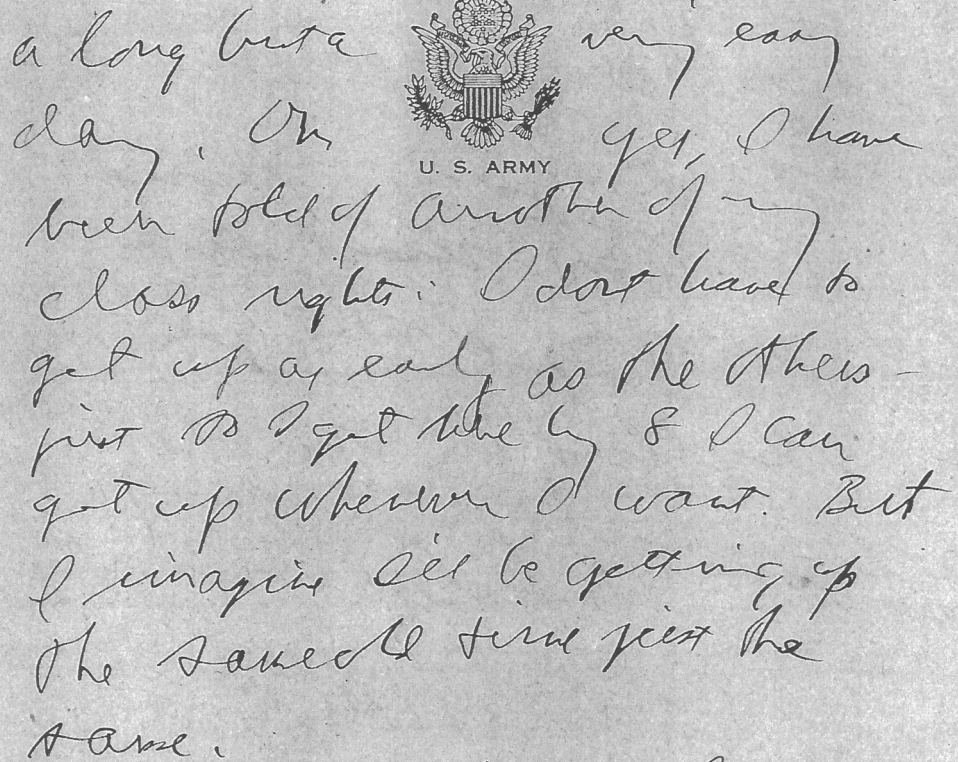 a long but a very easy
day. Oh yes, I have
U. S. ARMY
been told of another of my
class rights: I dont have to
get up as early as the others –
just so I get here by 8 I can
get up whenever I want. But
I imagine I'll be getting up
the same old time just the
same.